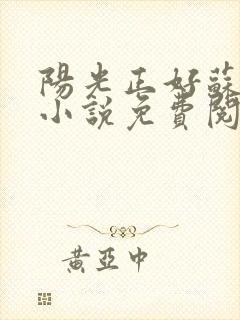 陽光正好蘇
小說免費閱
黃亞中